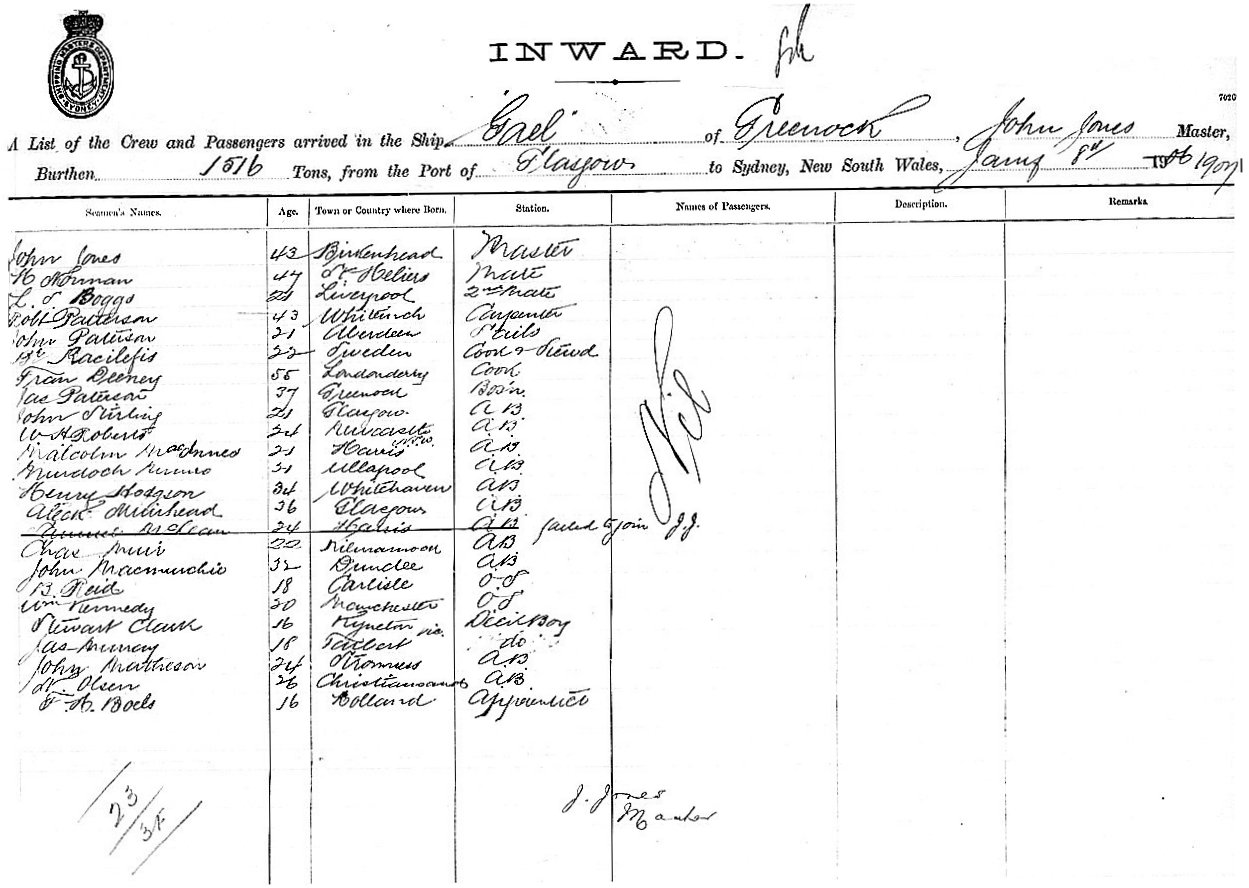 SHIPPING MASTER'S DEPARTMENT SYDNEY
INWARD.
7020
A List of the Crew and Passengers arrived in the Ship "Gael" of Greenock, John Jones Master,
Burthen 1516 Tons, from the Port of Glasgow to Sydney, New South Wales, Jany 8th 1906 1907
Seamen's Names. Age. Town or Country where Born. Station. Names of Passengers. Description. Remarks.
John Jones 43 Birkenhead Master
H Norman 47 St Heliers Mate
L. S. Boggs 21 Liverpool 2nd Mate
Robt Patterson 43 Whiteinch Carpenter
John Paterson 21 Aberdeen Sails
22 Sweden Cook & Stewd
Fran Deeney 55 Londonderry Cook
Jas Paterson 37 Greenock Bos'n
John Stirling 21 Glasgow AB
W H Roberts 24 Newcastle N.S.W. AB
Malcolm MacInnes 21 Harris AB
Murdoch Munro 21 Ullapool AB
Henry Hodgson 34 Whitehaven AB
Aleck Muirhead 36 Glasgow AB
McLean 24 Harris AB failed to join J.J.
Chas Muir 22 Kilmarnock AB
John Macmurchie 32 Dundee AB
B. Reid 18 Carlisle O.S
Wm Kennedy 20 Manchester O.S
Stewart Clark 16 Kyneton Vic. Deck Boy
Jas Murray 18 Tarbert do
John Matheson 24 Stromness AB
N. Olsen 26 Christiansand AB
F. H. Boels 16 Holland Apprentice
Nil
J. Jones
Master
23